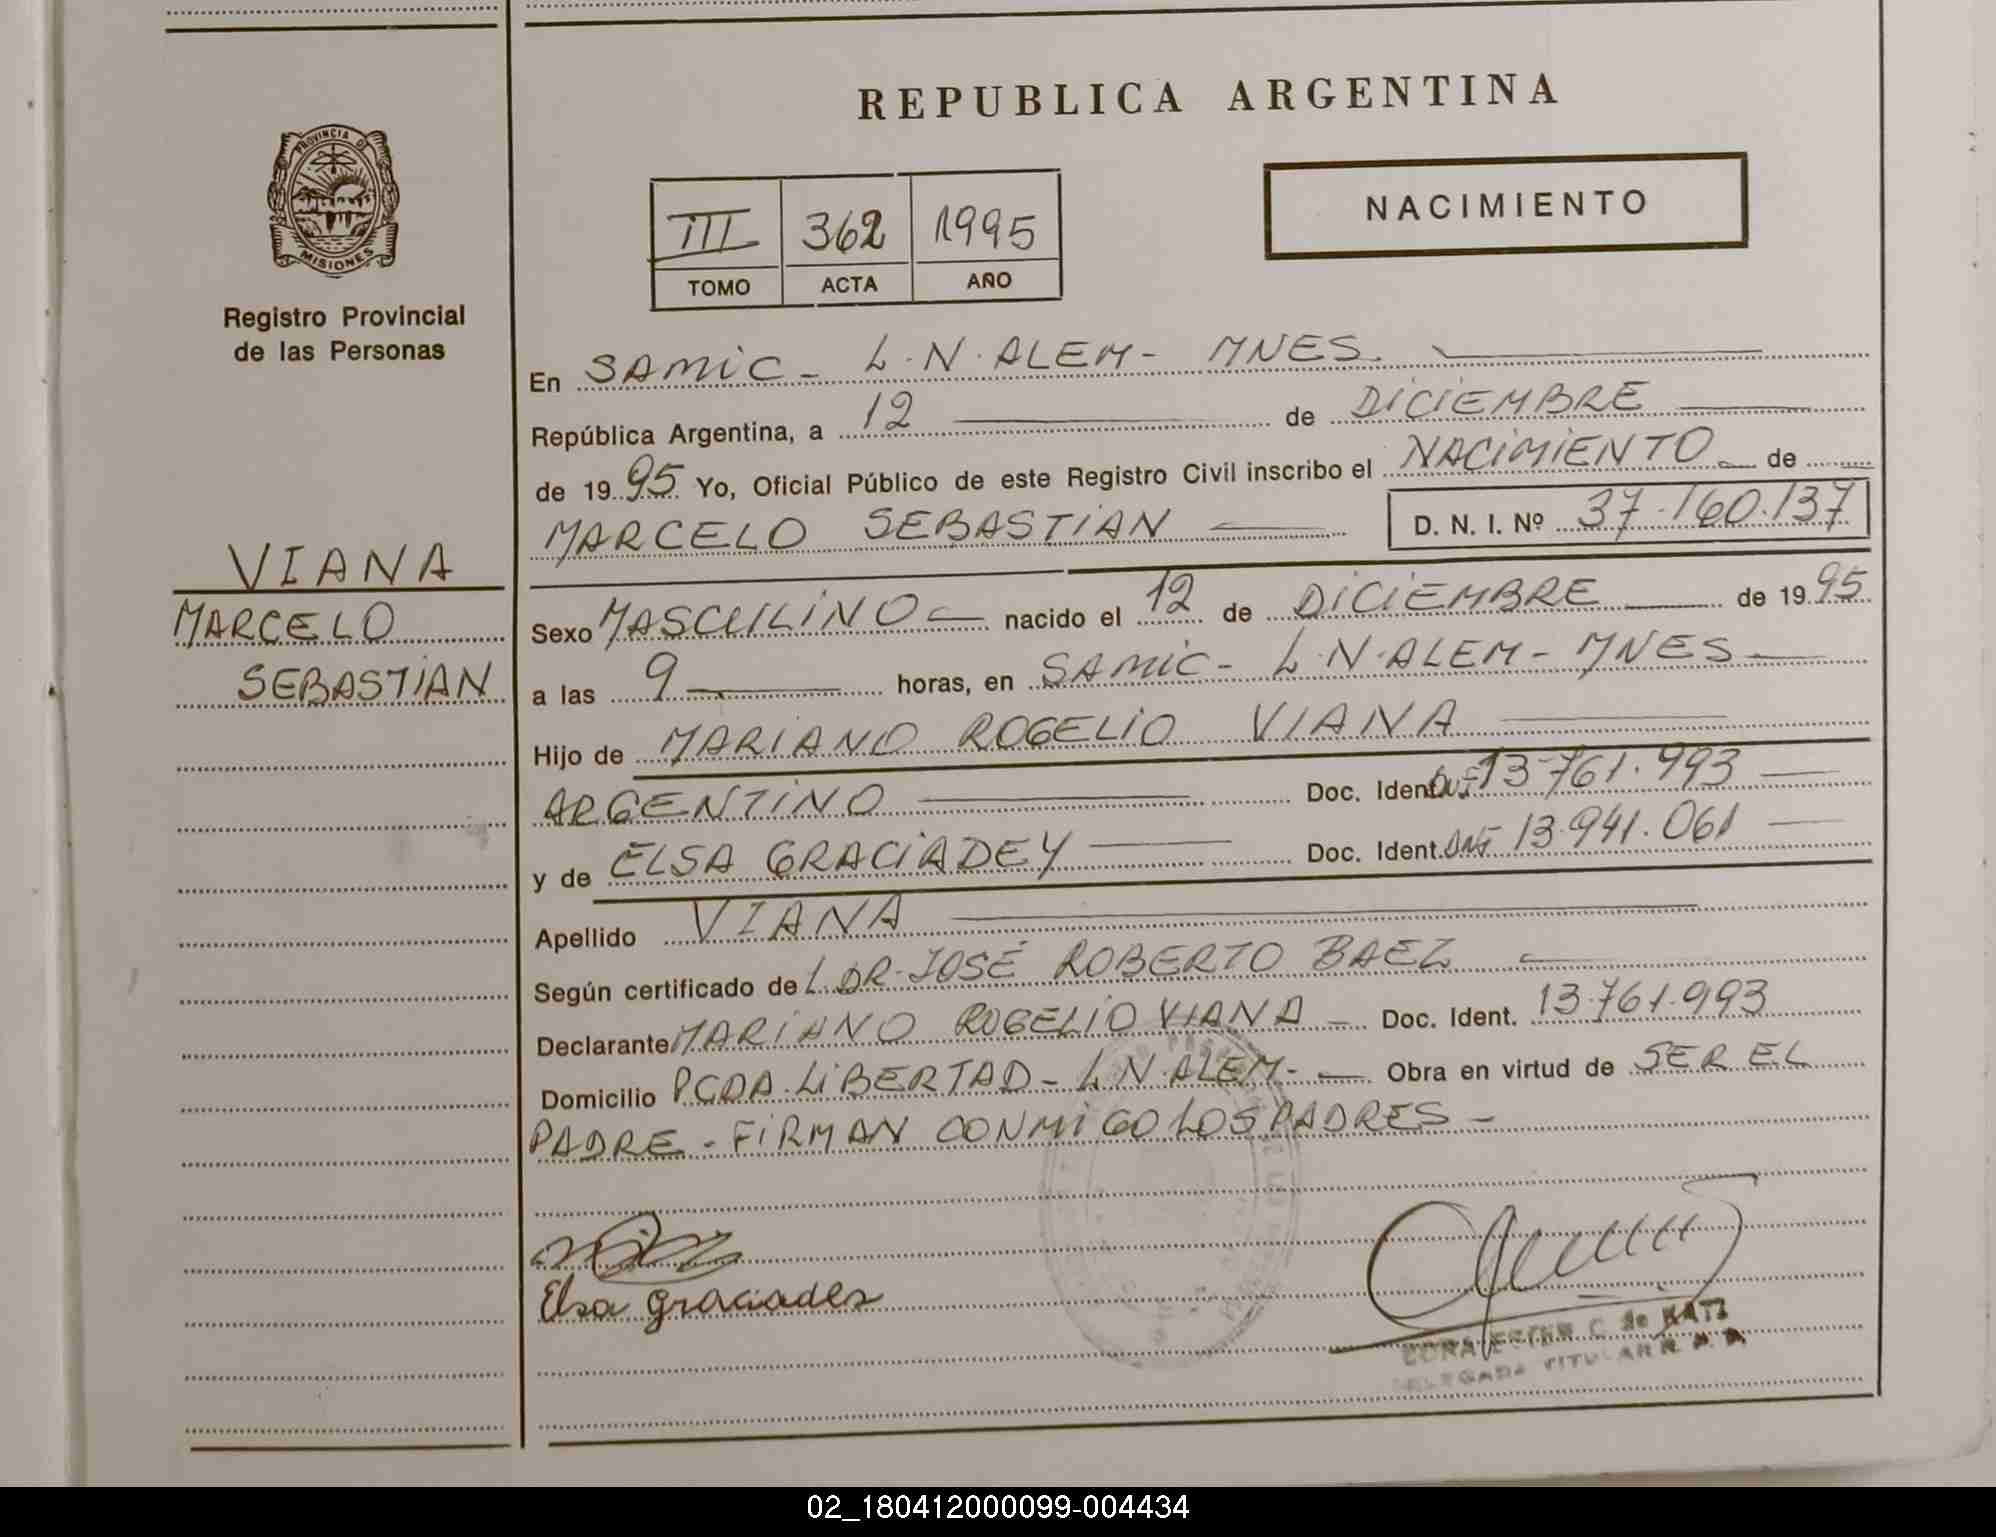 REPUBLICA ARGENTINA
PROVINCIA DE
MISIONES
Registro Provincial
de las Personas
III 362 1995
TOMO ACTA AÑO
NACIMIENTO
En SAMIC - L.N.ALEM - MNES.
República Argentina, a 12 de DICIEMBRE
de 1995 Yo, Oficial Público de este Registro Civil inscribo el NACIMIENTO de
MARCELO SEBASTIAN D. N. I. Nº 37.160.137
VIANA
MARCELO
SEBASTIAN
Sexo MASCULINO nacido el 12 de DICIEMBRE de 1995
a las 9 horas, en SAMIC - L.N.ALEM - MNES
Hijo de MARIANO ROGELIO VIANA
ARGENTINO Doc. Ident. 13.761.993
y de ELSA GRACIADEY Doc. Ident. DNI 13.941.061
Apellido VIANA
Según certificado de L DR. JOSÉ ROBERTO BAEZ
Declarante MARIANO ROGELIO VIANA - Doc. Ident. 13.761.993
Domicilio PCDA. LIBERTAD - L N.ALEM - Obra en virtud de SER EL
PADRE - FIRMAN CONMIGO LOS PADRES -
Elsa graciades
C. de KATZ
DELEGADA TITULAR R. P. P.
02_180412000099-004434